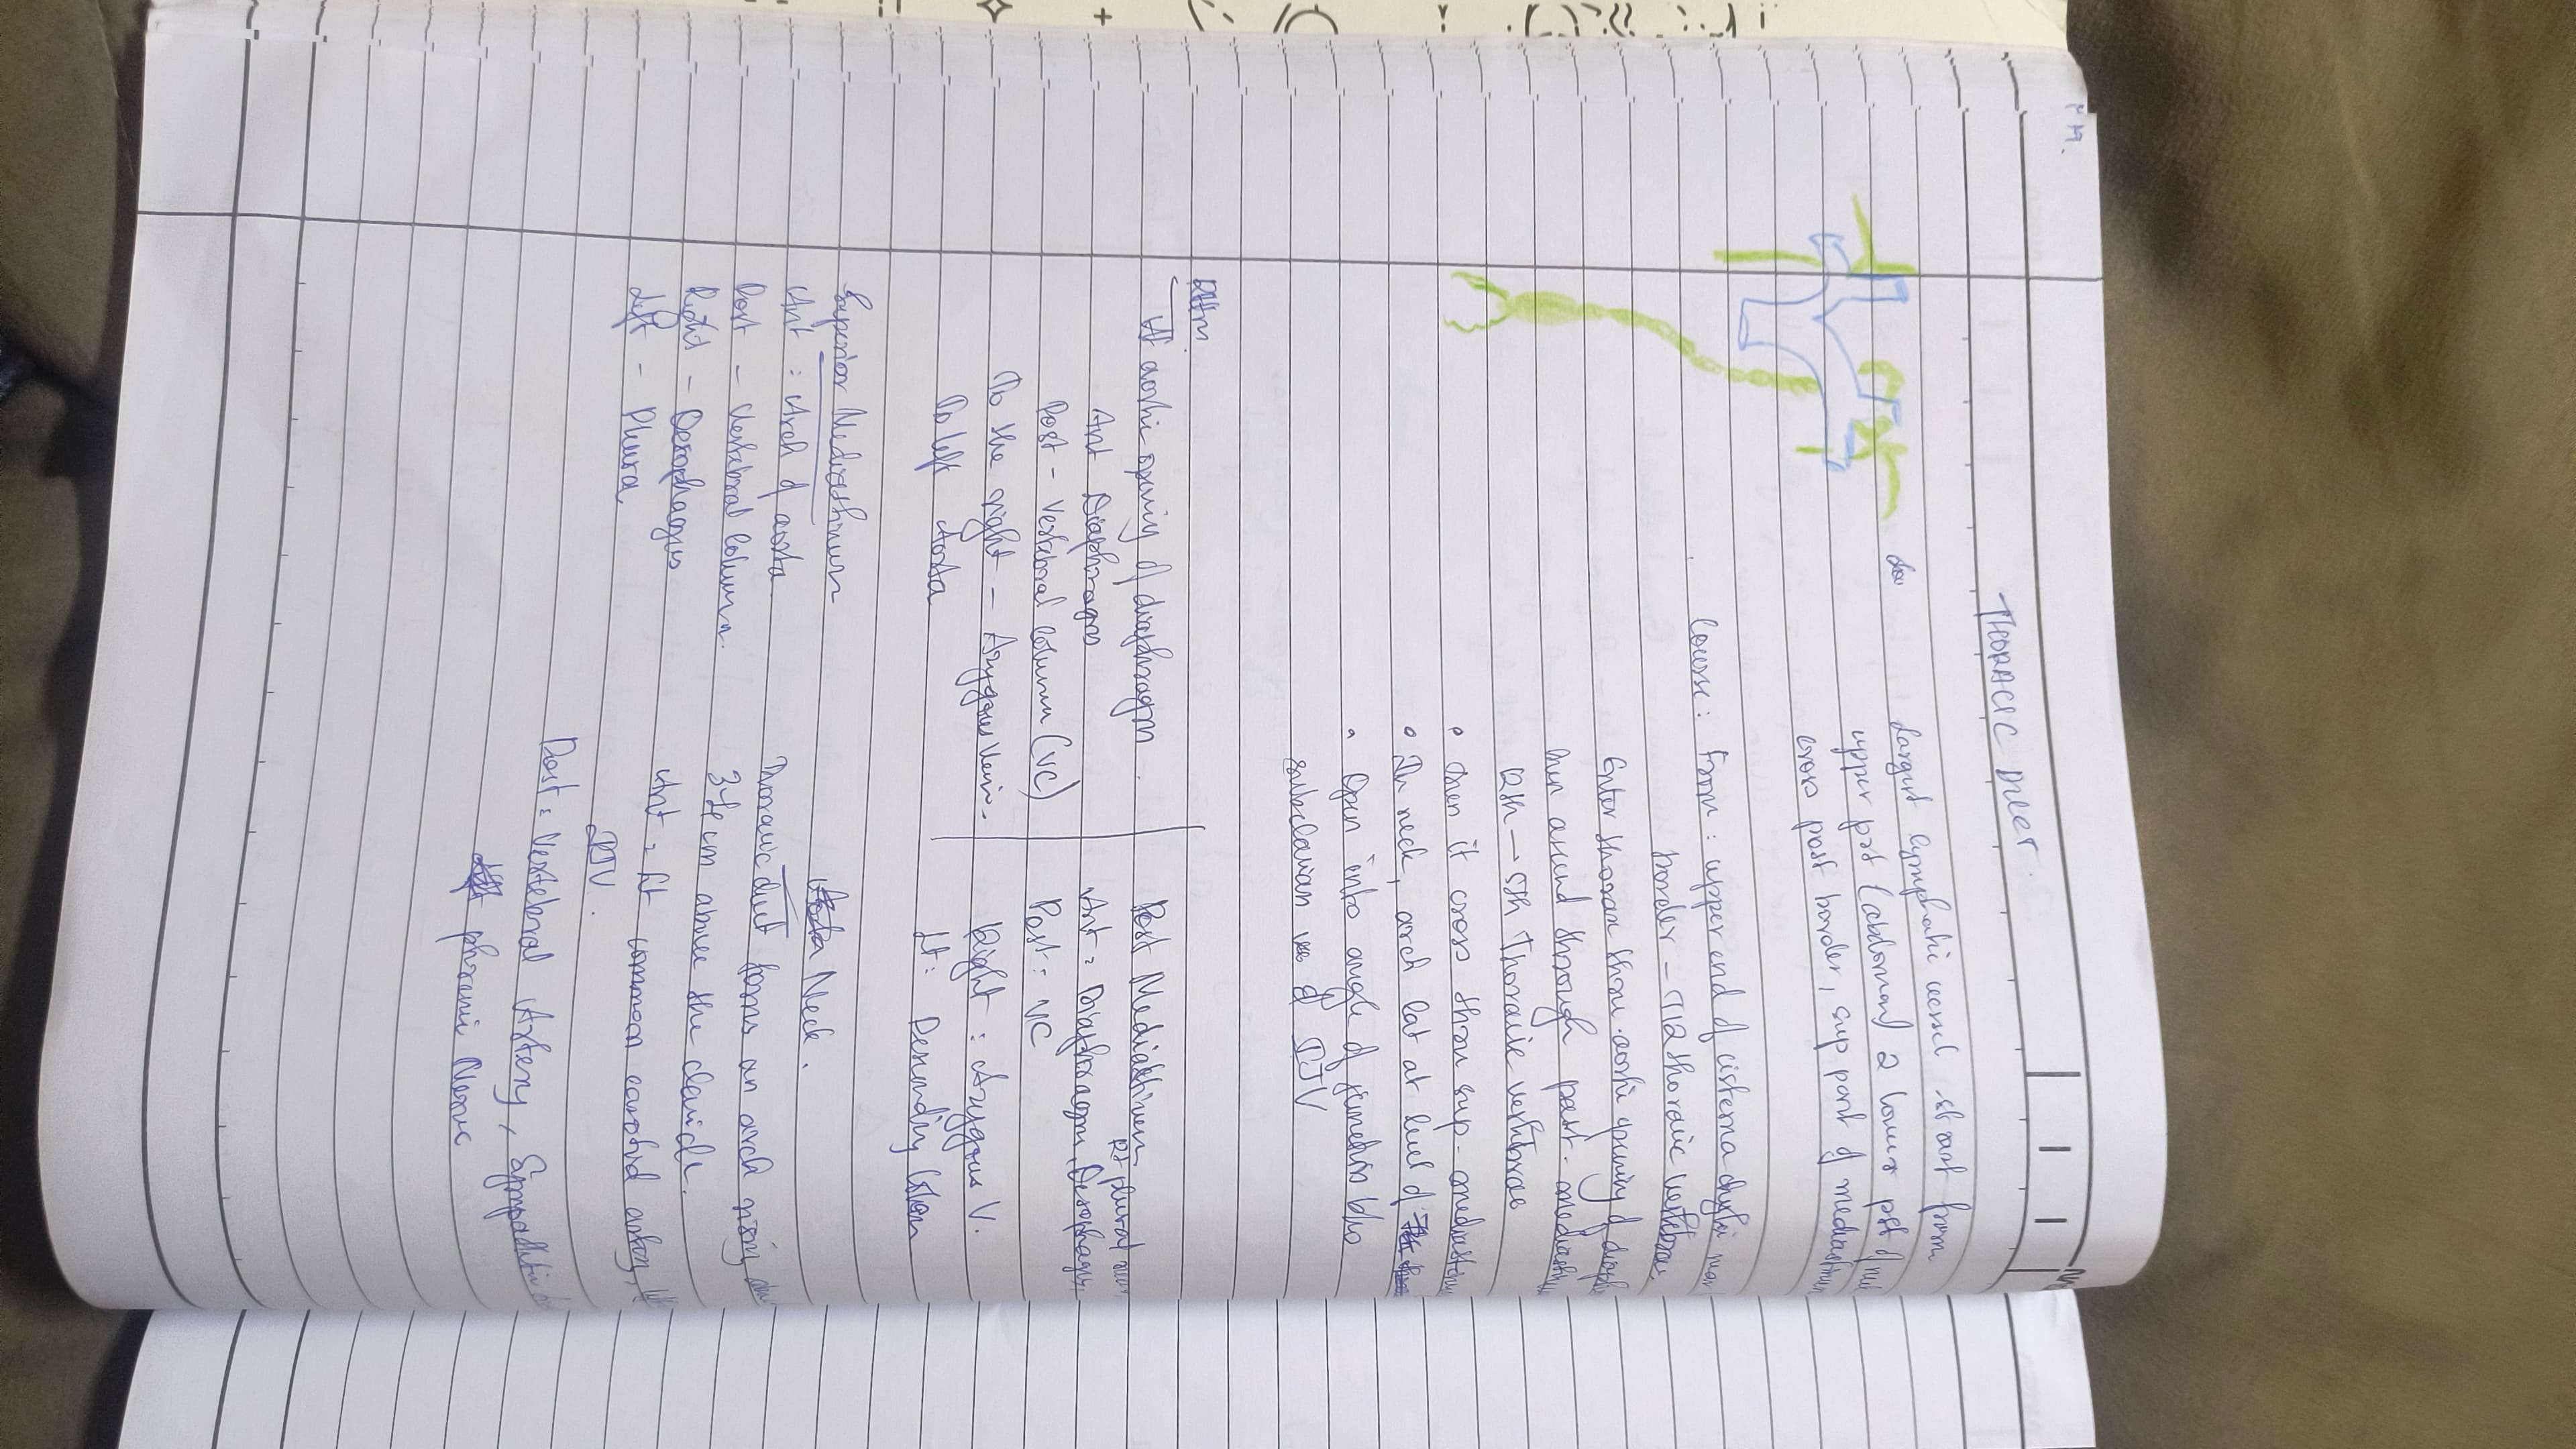 THORACIC DUCT.
Largest lymphatic vessel start from
upper part (abdomen) 2 lower part of
cross post border, sup part of mediastinum
Course: From: upper end of cisterna chyli
border - T12 thoracic vertebrae.
Enter thorax thro. aortic opening of
then ascend through post.
12th → 5th Thoracic vertebrae
• then it cross thro sup-
• In neck, arch lat at level of
• Open into angle of junction b/w
subclavian of IJV
Rltn.
At aortic opening of diaphragm.
Ant Diaphragm
Post - Vertebral column (VC)
To the right - Azygous Vein.
To left Aorta
Post Mediastinum
Rt pleural
Ant = Diaphragm, Oesophagus
Post: VC
Right : Azygous V.
Lt: Descending
Superior Mediastinum
Ant : Arch of aorta
Post - Vertebral column.
Right - Oesophagus
Left - Pleura
Neck.
Thoracic duct forms an arch rising
3-4 cm above the clavicle.
Ant = Lt common carotid artery,
IJV.
Post = Vertebral Artery, Sympathetic
phrenic Nerve